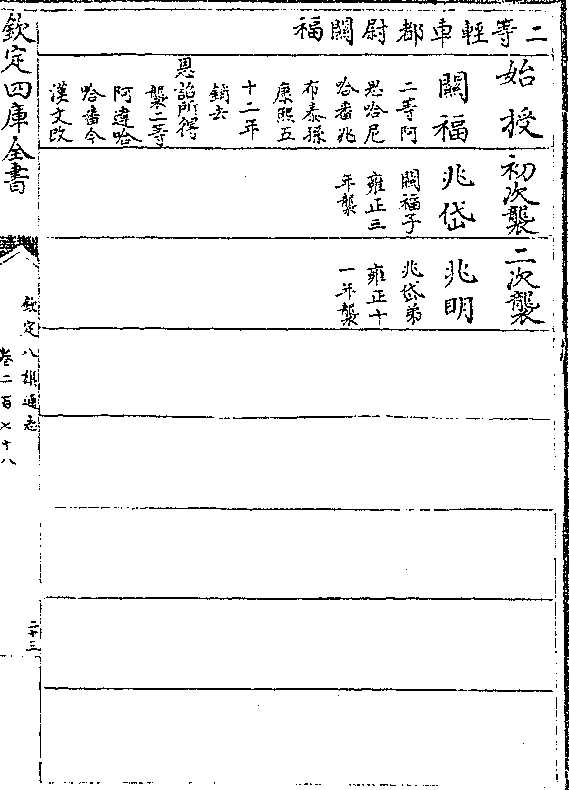 二等輕車都尉關福
始授
關福
二等阿
思哈尼
哈番兆
布泰孫
康熙五
十二年
銷去
恩詔所得
襲二等
阿達哈
哈番今
漢文改
初次襲
兆岱
關福子
雍正三
年襲
二次襲
兆明
兆岱弟
雍正十
一年襲
欽定四庫全書
欽定八旗通志
卷二百七十八
二十三